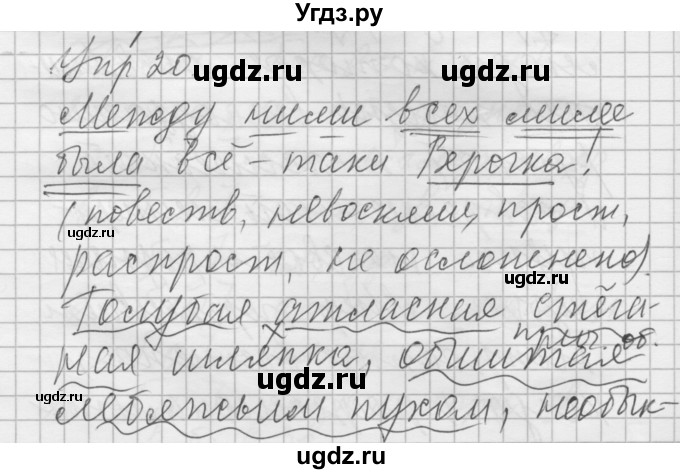 Угдз.ру
Упр 20
ugdz.ru ugdz.ru
Между ними всех милее
была всё-таки Верочка!
ugdz.ru
(повеств, невосклиц, прост,
ugdz.ru
распрост, не осложнено).
ugdz.ru ugdz.ru
Голубая атласная стёга-
прич. об.
ная шляпка, обшитая
ugdz.ru
лебяжьим пухом, необык-
ugdz.ru
ugdz.ru